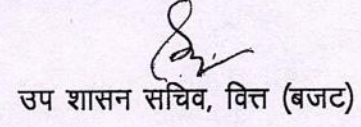 उप शासन सचिव, वित्त (बजट)